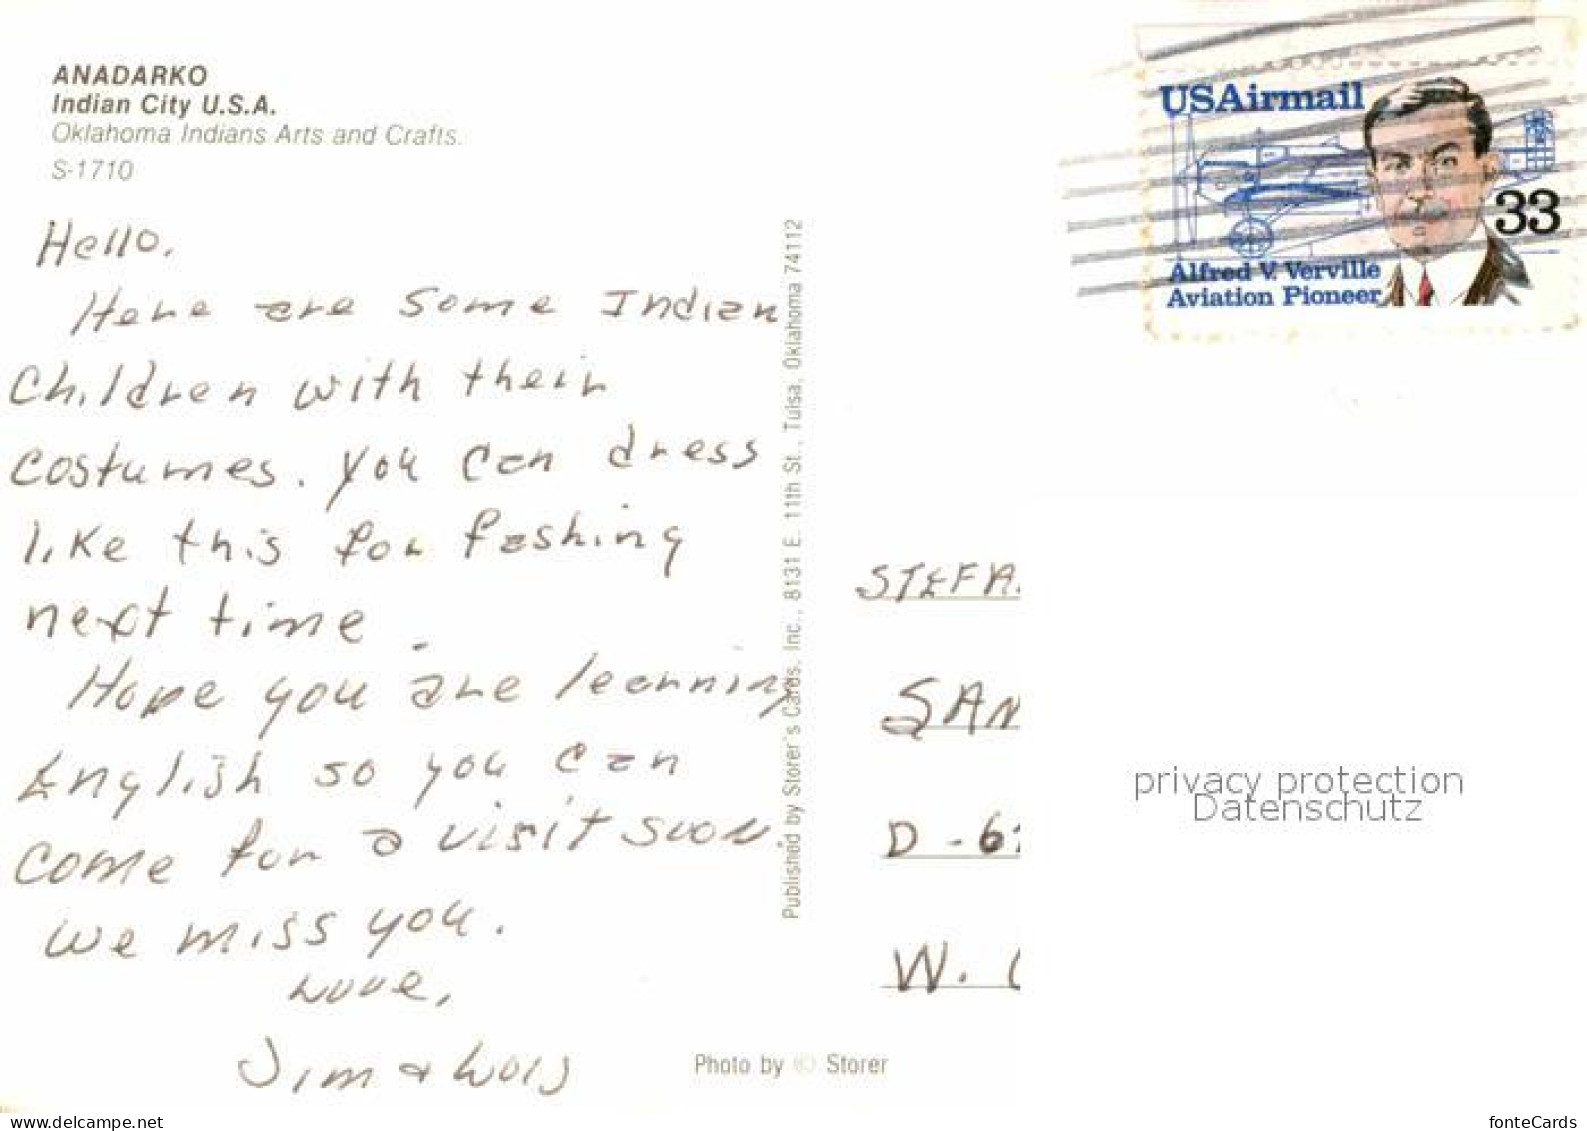 ANADARKO
Indian City U.S.A.
Oklahoma Indians Arts and Crafts.
S-1710
Hello,
Here are some Indian
Children with their
costumes. you can dress
like this for fashing
next time.
Hope you are learning
English so you can
come for a visit soon.
we miss you.
Love,
Jim & Lois
Published by Storer's Cards, Inc., 8131 E. 11th St., Tulsa, Oklahoma 74112
Photo by © Storer
USAirmail
33
Alfred V. Verville
Aviation Pioneer
STEFA
SAN
D-6
W.
privacy protection
Datenschutz
www.delcampe.net
fonteCards